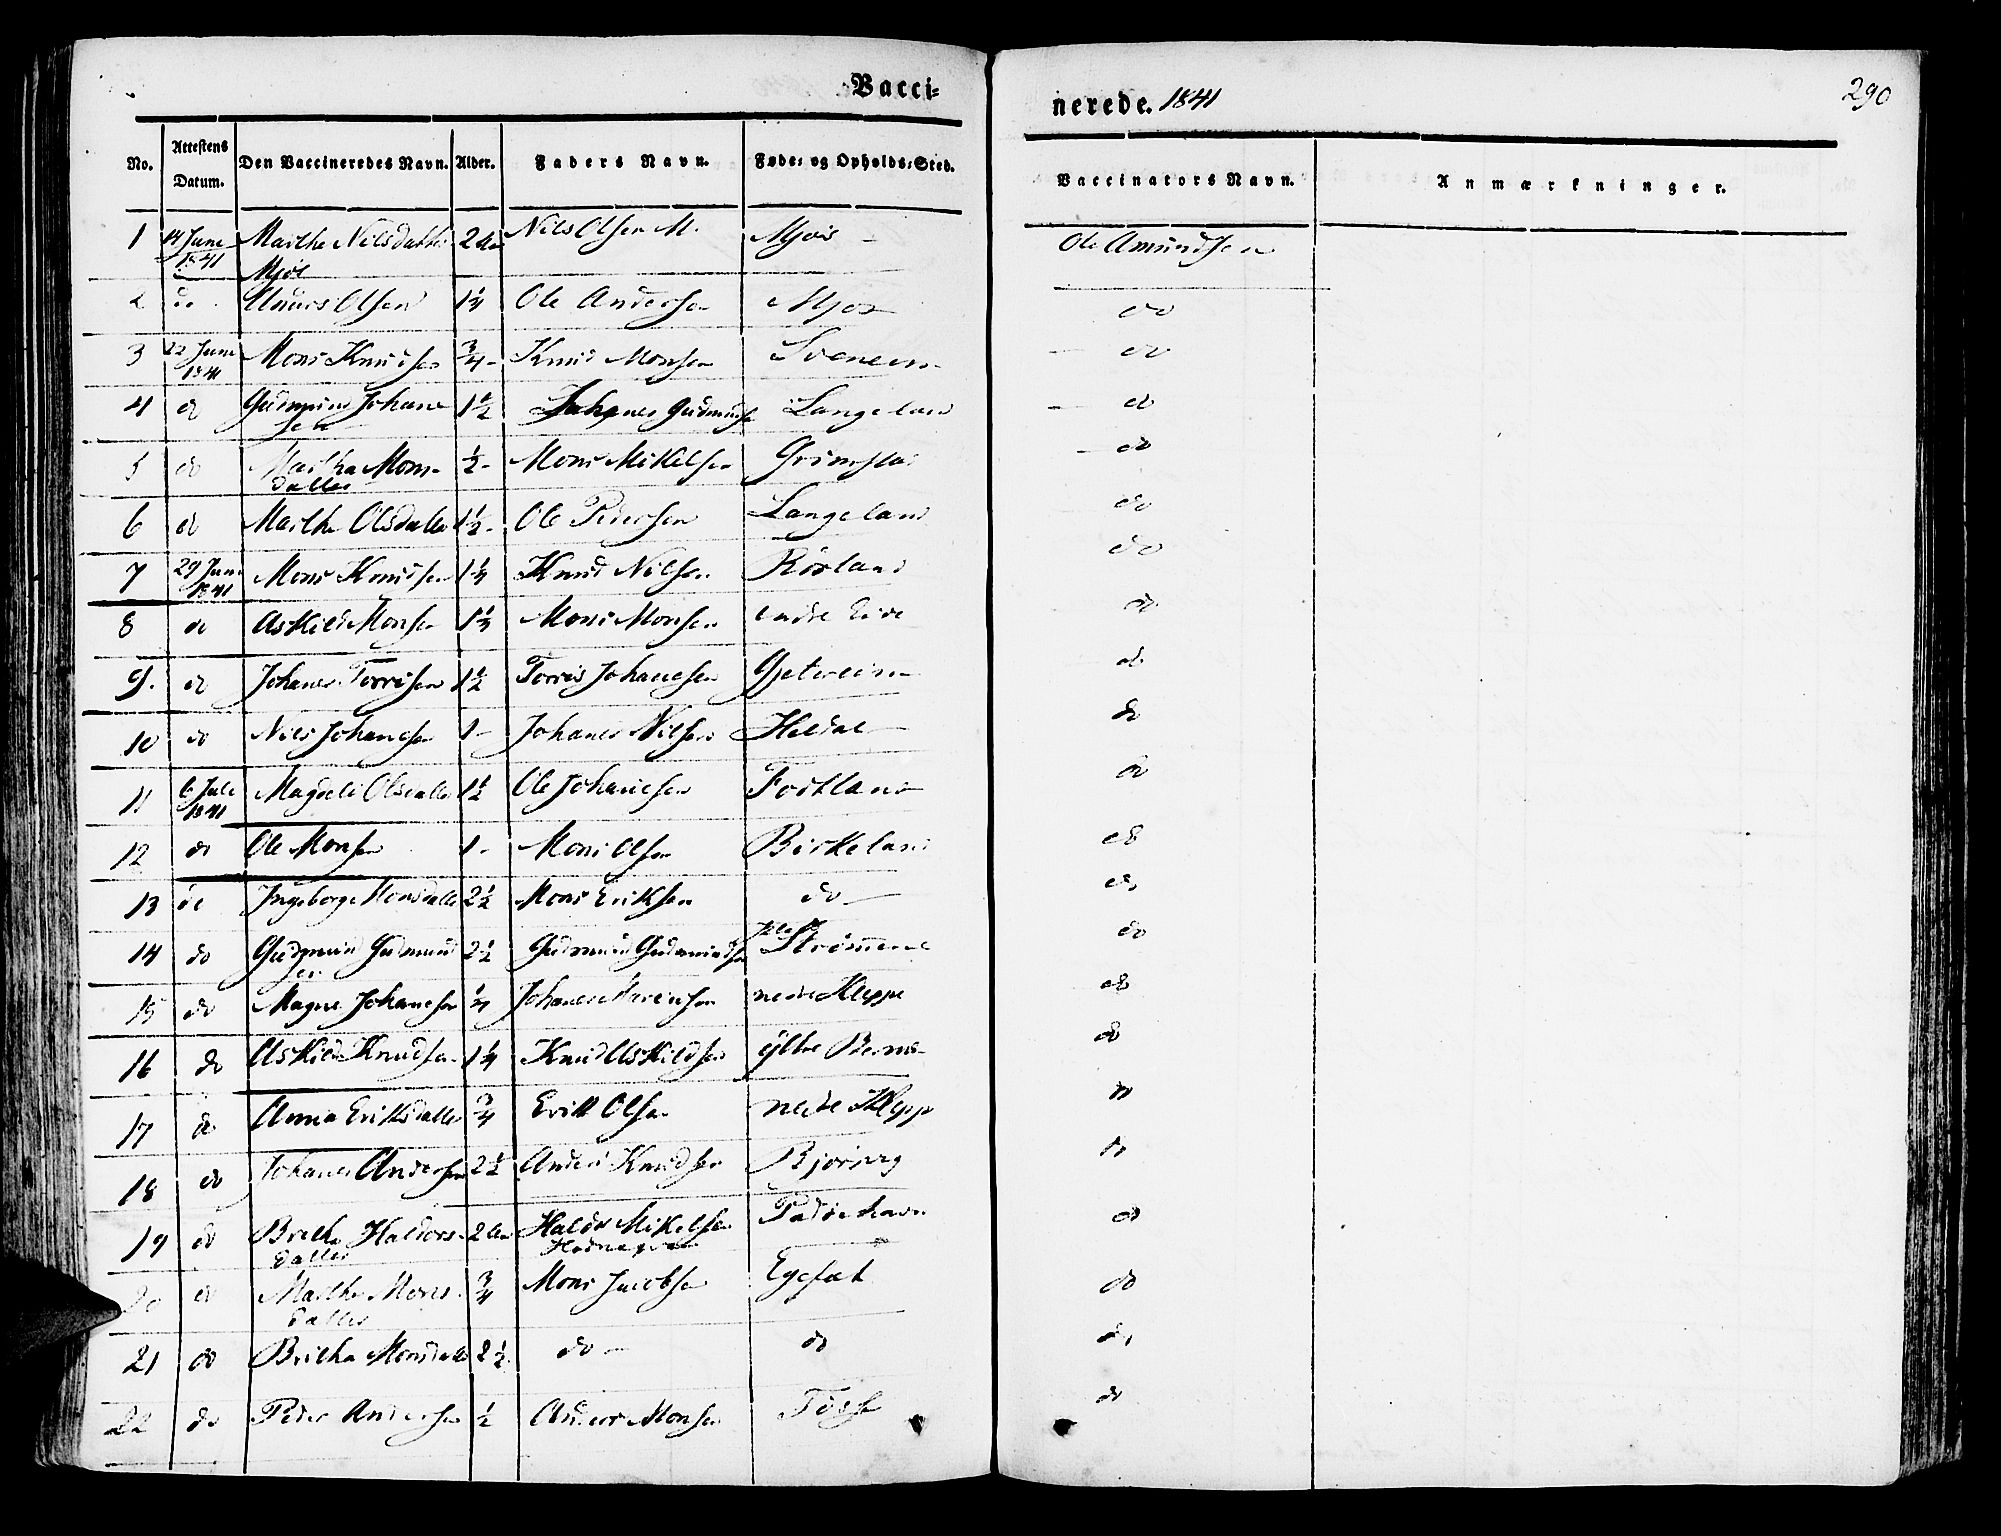 Vacci-
nerede. 1841
290
No. Attestens Datum. Den Vaccineredes Navn. Alder. Faders Navn. Føde- og Opholds-Sted. Vaccinators Navn. Anmærkninger.
1 14 June 1841 Marthe Nilsdatter Mjøs 2 Aar Nils Olsen M. Mjøs Ole Amundsen
2 do Anders Olsen 1 1/4 Ole Andersen Mjøs do
3 22 June 1841 Mons Knudsen 3/4 Knud Monsen do
4 do Gudmund Johanesen 1 1/2 Johanes Gudmundsen Langeland do
5 do Martha Monsdatter 1/2 Mons Mikelsen Grimstad do
6 do Marthe Olsdatter 1 1/2 Ole Pedersen Langeland do
7 29 Juni 1841 Mons Knudsen 1 1/4 Knud Nilsen Röxland do
8 do Askild Monsen Mons Monsen indre Eide do
9. do Johanes Torrisen 1 1/2 Torris Johanesen Gjetereim do
10 do Nils Johanesen 1 Johanes Nilsen Heldal do
11 6 Juli 1841 Magdeli Olsdatter 1 1/2 Ole Johanesen Tortland do
12 do Ole Monsen 1 Mons Olsen Birkeland do
13 do Ingeborg Monsdatter 2 1/2 Mons Eriksen do do
14 do Gudmund Gudmundsen 2 1/2 Gudmund Gudmundsen Strømmene do
15 do Magne Johanesen 1/4 Johanes nedre Kleppe do
16 do Askild Knudsen 1 1/4 Knud Askildsen ÿttre do
17 do Anna Eriksdatter 3/4 Erik Olsen nedre Klepp do
18 do Johanes Andersen 2 1/2 Anders Knudsen Bjørnevg do
19 do Brithe Haldorsdatter 2 Aar Haldor Mikelsen do
20 do Marthe Monsdatter 3/4 Mons Jacobsen Egesæt do
21 do Britha Monsdatter 2 1/2 do do do
22 do Peder Andersen 1/2 Anders Monsen Tösse do